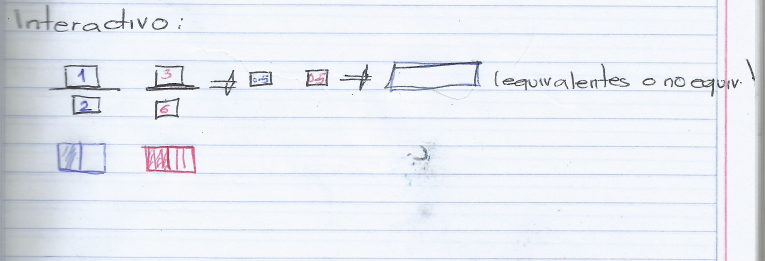 Interactivo:
1 3 ⇒ 0.5 0.5 ⇒ (equivalentes o no equiv.)
2 6